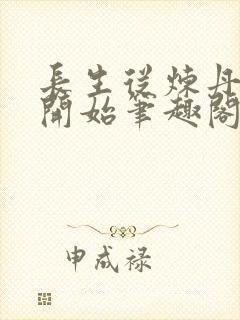 長生從煉丹
開始筆趣閣
申成禄